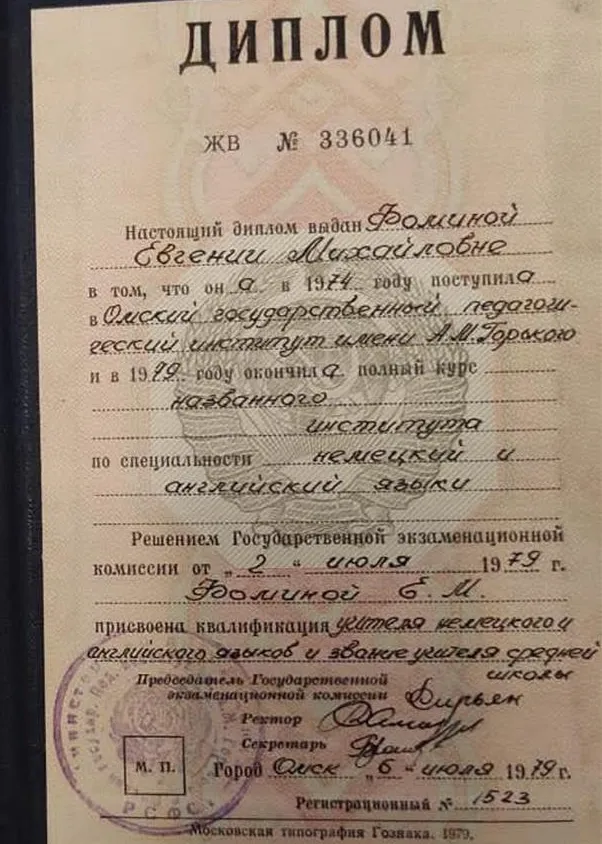 ДИПЛОМ
ЖВ № 336041
Настоящий диплом выдан Фоминой
Евгении Михайловне
в том, что он а в 1974 году поступила
в Омский государственный педагоги-
ческий институт имени А.М.Горького
и в 1979 году окончила полный курс
названного
института
по специальности немецкий и
английский языки
Решением Государственной экзаменационной
комиссии от „2" июля 1979 г.
Фоминой Е. М.
присвоена квалификация учителя немецкого и
английского языков и звание учителя средней
школы
Председатель Государственной
экзаменационной комиссии
Ректор
Секретарь
М. П.
Город Омск „6" июля 1979 г.
Регистрационный № 1523
РСФС
Московская типография Гознака. 1979.